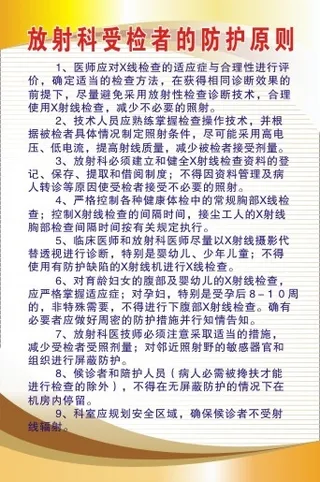 放射科受检者的防护原则
1、医师应对X线检查的适应症与合理性进行评
价，确定适当的检查方法，在获得相同诊断效果的
前提下，尽量避免采用放射性检查诊断技术，合理
使用X射线检查，减少不必要的照射。
2、技术人员应熟练掌握检查操作技术，并根
据被检者具体情制定照射条件，尽可能采用高电
压、低电流，提高射线质量，减少被检者接受剂量。
3、放射科必须建立和健全X射线检查资料的登
记、保存、提取和借阅制度；不得因资料管理及病
人转诊等原因使受检者接受不必要的照射。
4、严格控制各种健康体检中的常规胸部X线检
查；控制X射线检查的间隔时间，接尘工人的X射线
胸部检查间隔时间按有关规定执行。
5、临床医师和放射科医师尽量以X射线摄影代
替透视进行诊断，特别是婴幼儿、少年儿童；不得
使用有防护缺陷的X射线机进行X线检查。
6、对育龄妇女的腹部及婴幼儿的X射线检查，
应严格掌握适应症；对孕妇，特别是受孕后8－10周
的，非特殊需要，不得进行下腹部X射线检查。确有
必要者应做好周密的防护措施并行知情告知。
7、放射科医技师必须注意采取适当的措施，
减少受检者受照剂量；对邻近照射野的敏感器官和
组织进行屏蔽防护。
8、候诊者和陪护人员（病人必需被搀扶才能
进行检查的除外），不得在无屏蔽防护的情况下在
机房内停留。
9、科室应规划安全区域，确保候诊者不受射
线辐射。